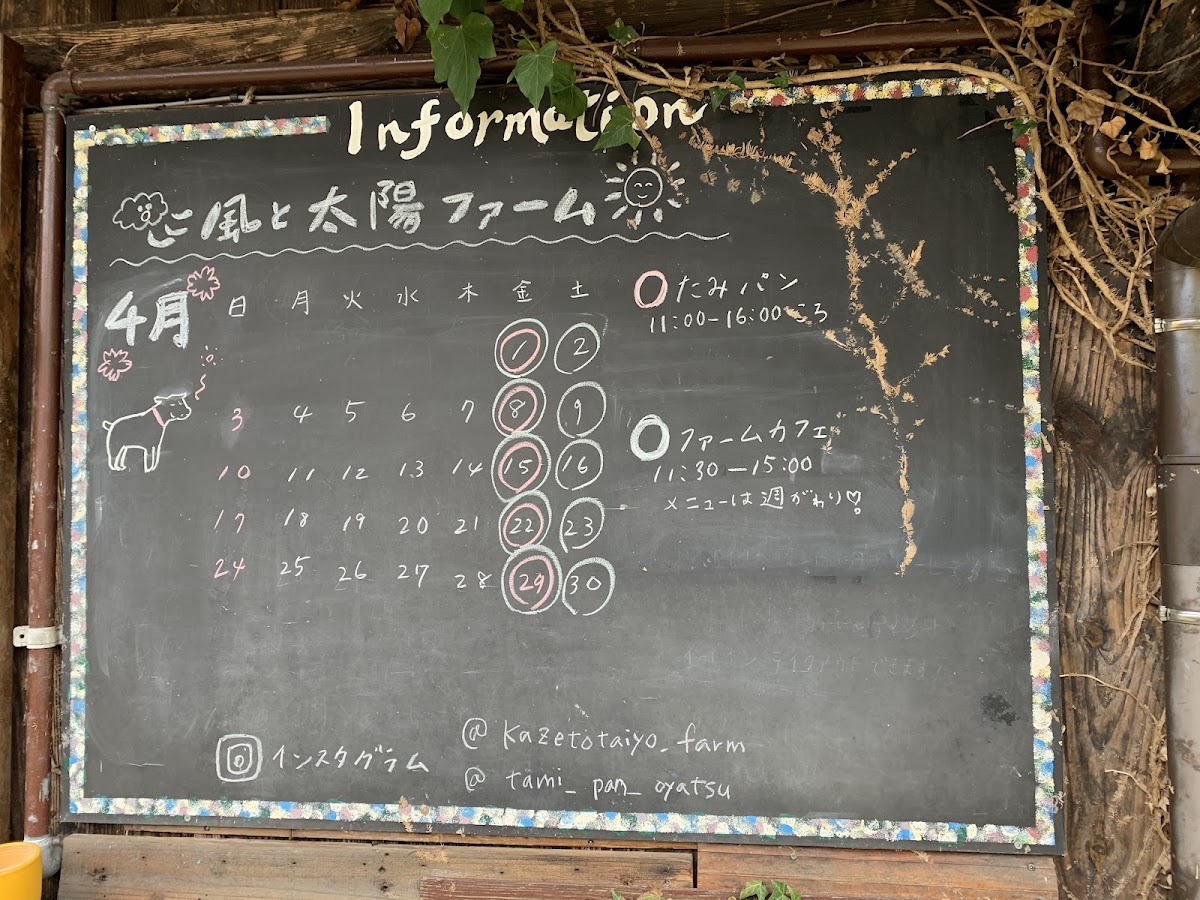 Information
風と太陽ファーム
4月
日 月 火 水 木 金 土
1 2
3 4 5 6 7 8 9
10 11 12 13 14 15 16
17 18 19 20 21 22 23
24 25 26 27 28 29 30
たみパン
11:00-16:00ごろ
ファームカフェ
11:30-15:00
メニューは週がわり♡
インスタグラム
@kazetotaiyo_farm
@tami_pan_oyatsu